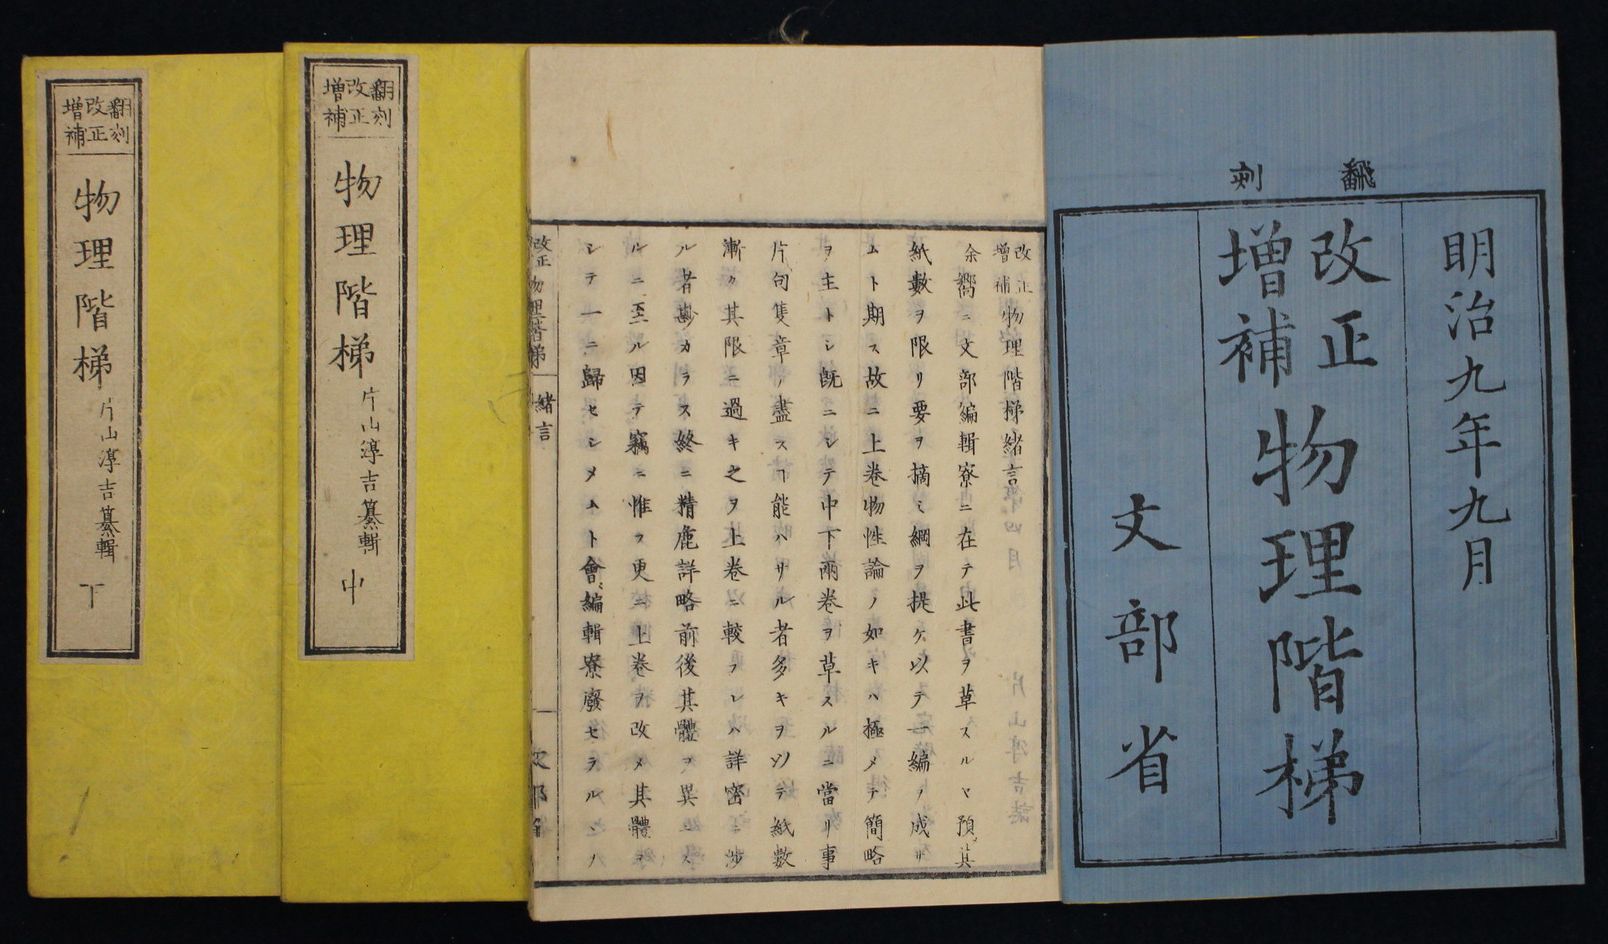 飜刻
明治九年九月
改正
増補
物理階梯
文部省
改正
増補
物理階梯緒言
余嚮ニ文部編輯寮ニ在テ此書ヲ草スルヤ預メ其
紙數ヲ限リ要ヲ摘ミ綱ヲ提ケ以テ一編ノ成ラ
ムト期ス故ニ上巻物性論ノ如キハ極メテ簡略
ヲ主トシ既ニシテ中下兩巻ヲ草スルニ當リ事
片句隻章ノ盡スヿ能ハサル者多キヲ以テ紙數
漸ク其限ニ過キ之ヲ上巻ニ較フレハ詳密ニ渉
ル者尠カラス終ニ精麁詳略前後其體ヲ異ニス
ルニ至ル因テ竊ニ惟フ更ニ上巻ヲ改メ其體ヲ
シテ一ニ歸セシメムト會編輯寮廢セラルヽノ
改正
物理階梯
緒言
文部省
翻刻
改正
増補
物理階梯
片山淳吉纂輯
中
翻刻
改正
増補
物理階梯
片山淳吉纂輯
下